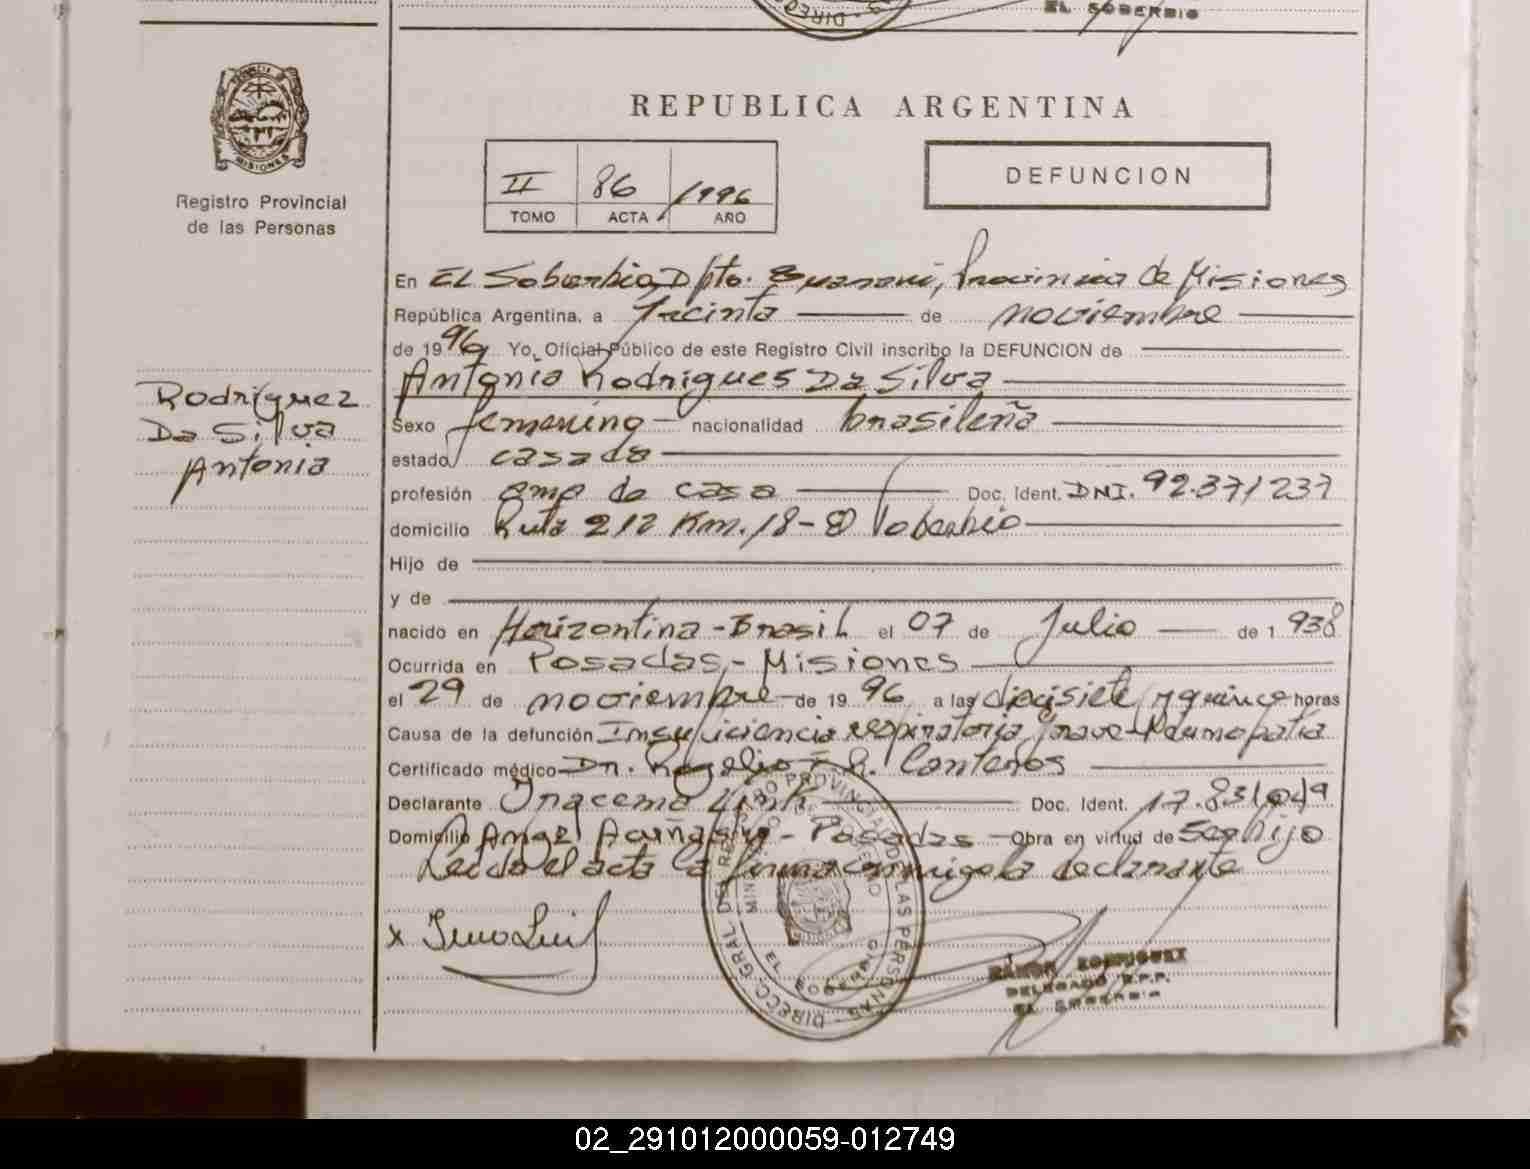 EL SOBERBIO
REPUBLICA ARGENTINA
DEFUNCION
II 86 1996
TOMO ACTA AÑO
MISIONES
Registro Provincial
de las Personas
En El Soberbio, Dpto. Guaraní, Provincia de Misiones
República Argentina, a Treinta de noviembre
de 1996 Yo, Oficial Público de este Registro Civil inscribo la DEFUNCION de
Antonia Rodrigues Da Silva
Rodríguez
Da Silva
Antonia
Sexo femenino nacionalidad brasileña
estado casada
profesión ama de casa Doc. Ident. DNI. 92.371237
domicilio Ruta 212 Km. 18 - El Soberbio
Hijo de
y de
nacido en Horizontina - Brasil el 07 de Julio de 1938
Ocurrida en Posadas - Misiones
el 29 de noviembre de 1996 a las diecisiete y quince horas
Causa de la defunción Insuficiencia respiratoria grave - Neumopatia
Certificado médico Dr. Rogelio R. Canteros
Declarante Iracema Link Doc. Ident. 17.831.049
Domicilio Angel Acuña s/n - Posadas - Obra en virtud de Ser hijo
Leida el acta la firma conmigo la declarante
DIRECC. GRAL. DEL REGISTRO PROVINCIAL DE LAS PERSONAS
EL SOBERBIO
RAMON RODRIGUEZ
DELEGADO R.P.P.
EL SOBERBIO
02_291012000059-012749